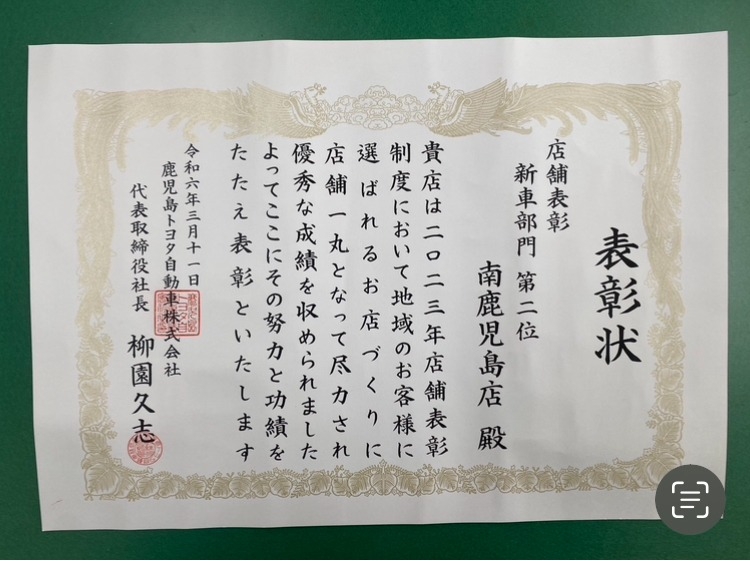 表彰状
店舗表彰
新車部門 第二位
南鹿児島店 殿
貴店は二〇二三年店舗表彰
制度において地域のお客様に
選ばれるお店づくりに
店舗一丸となって尽力され
優秀な成績を収められました
よってここにその努力と功績を
たたえ表彰といたします
令和六年三月十一日
鹿児島トヨタ自動車株式会社
代表取締役社長 柳園久志